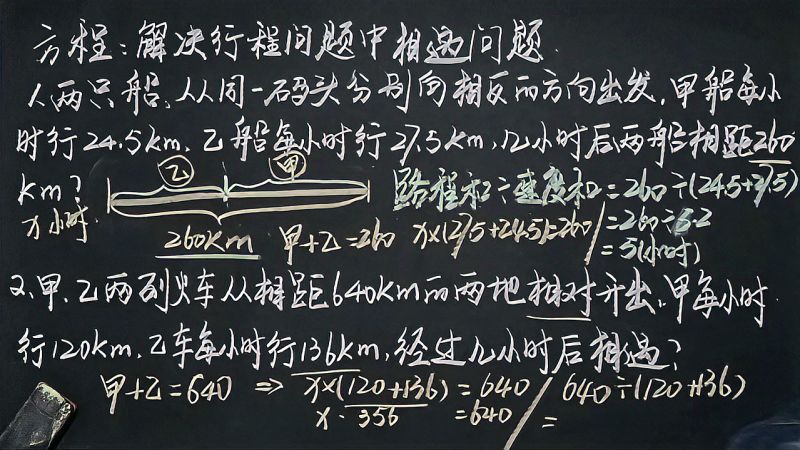 方程：解决行程问题中相遇问题.
1、两只船,从同一码头分别向相反的方向出发,甲船每小
时行24.5km,乙船每小时行27.5km,几小时后两船相距260
km？
乙 甲
x小时.
260km
甲+乙=260
x×(27.5+24.5)=260
路程和÷速度和=260÷(24.5+27.5)
=260÷52
=5(小时)
2、甲、乙两列火车从相距640km的两地相对开出,甲每小时
行120km,乙车每小时行136km,经过几小时后相遇？
甲+乙=640 ⇒ x×(120+136)=640 / 640÷(120+136)
x· 356 =640 / =